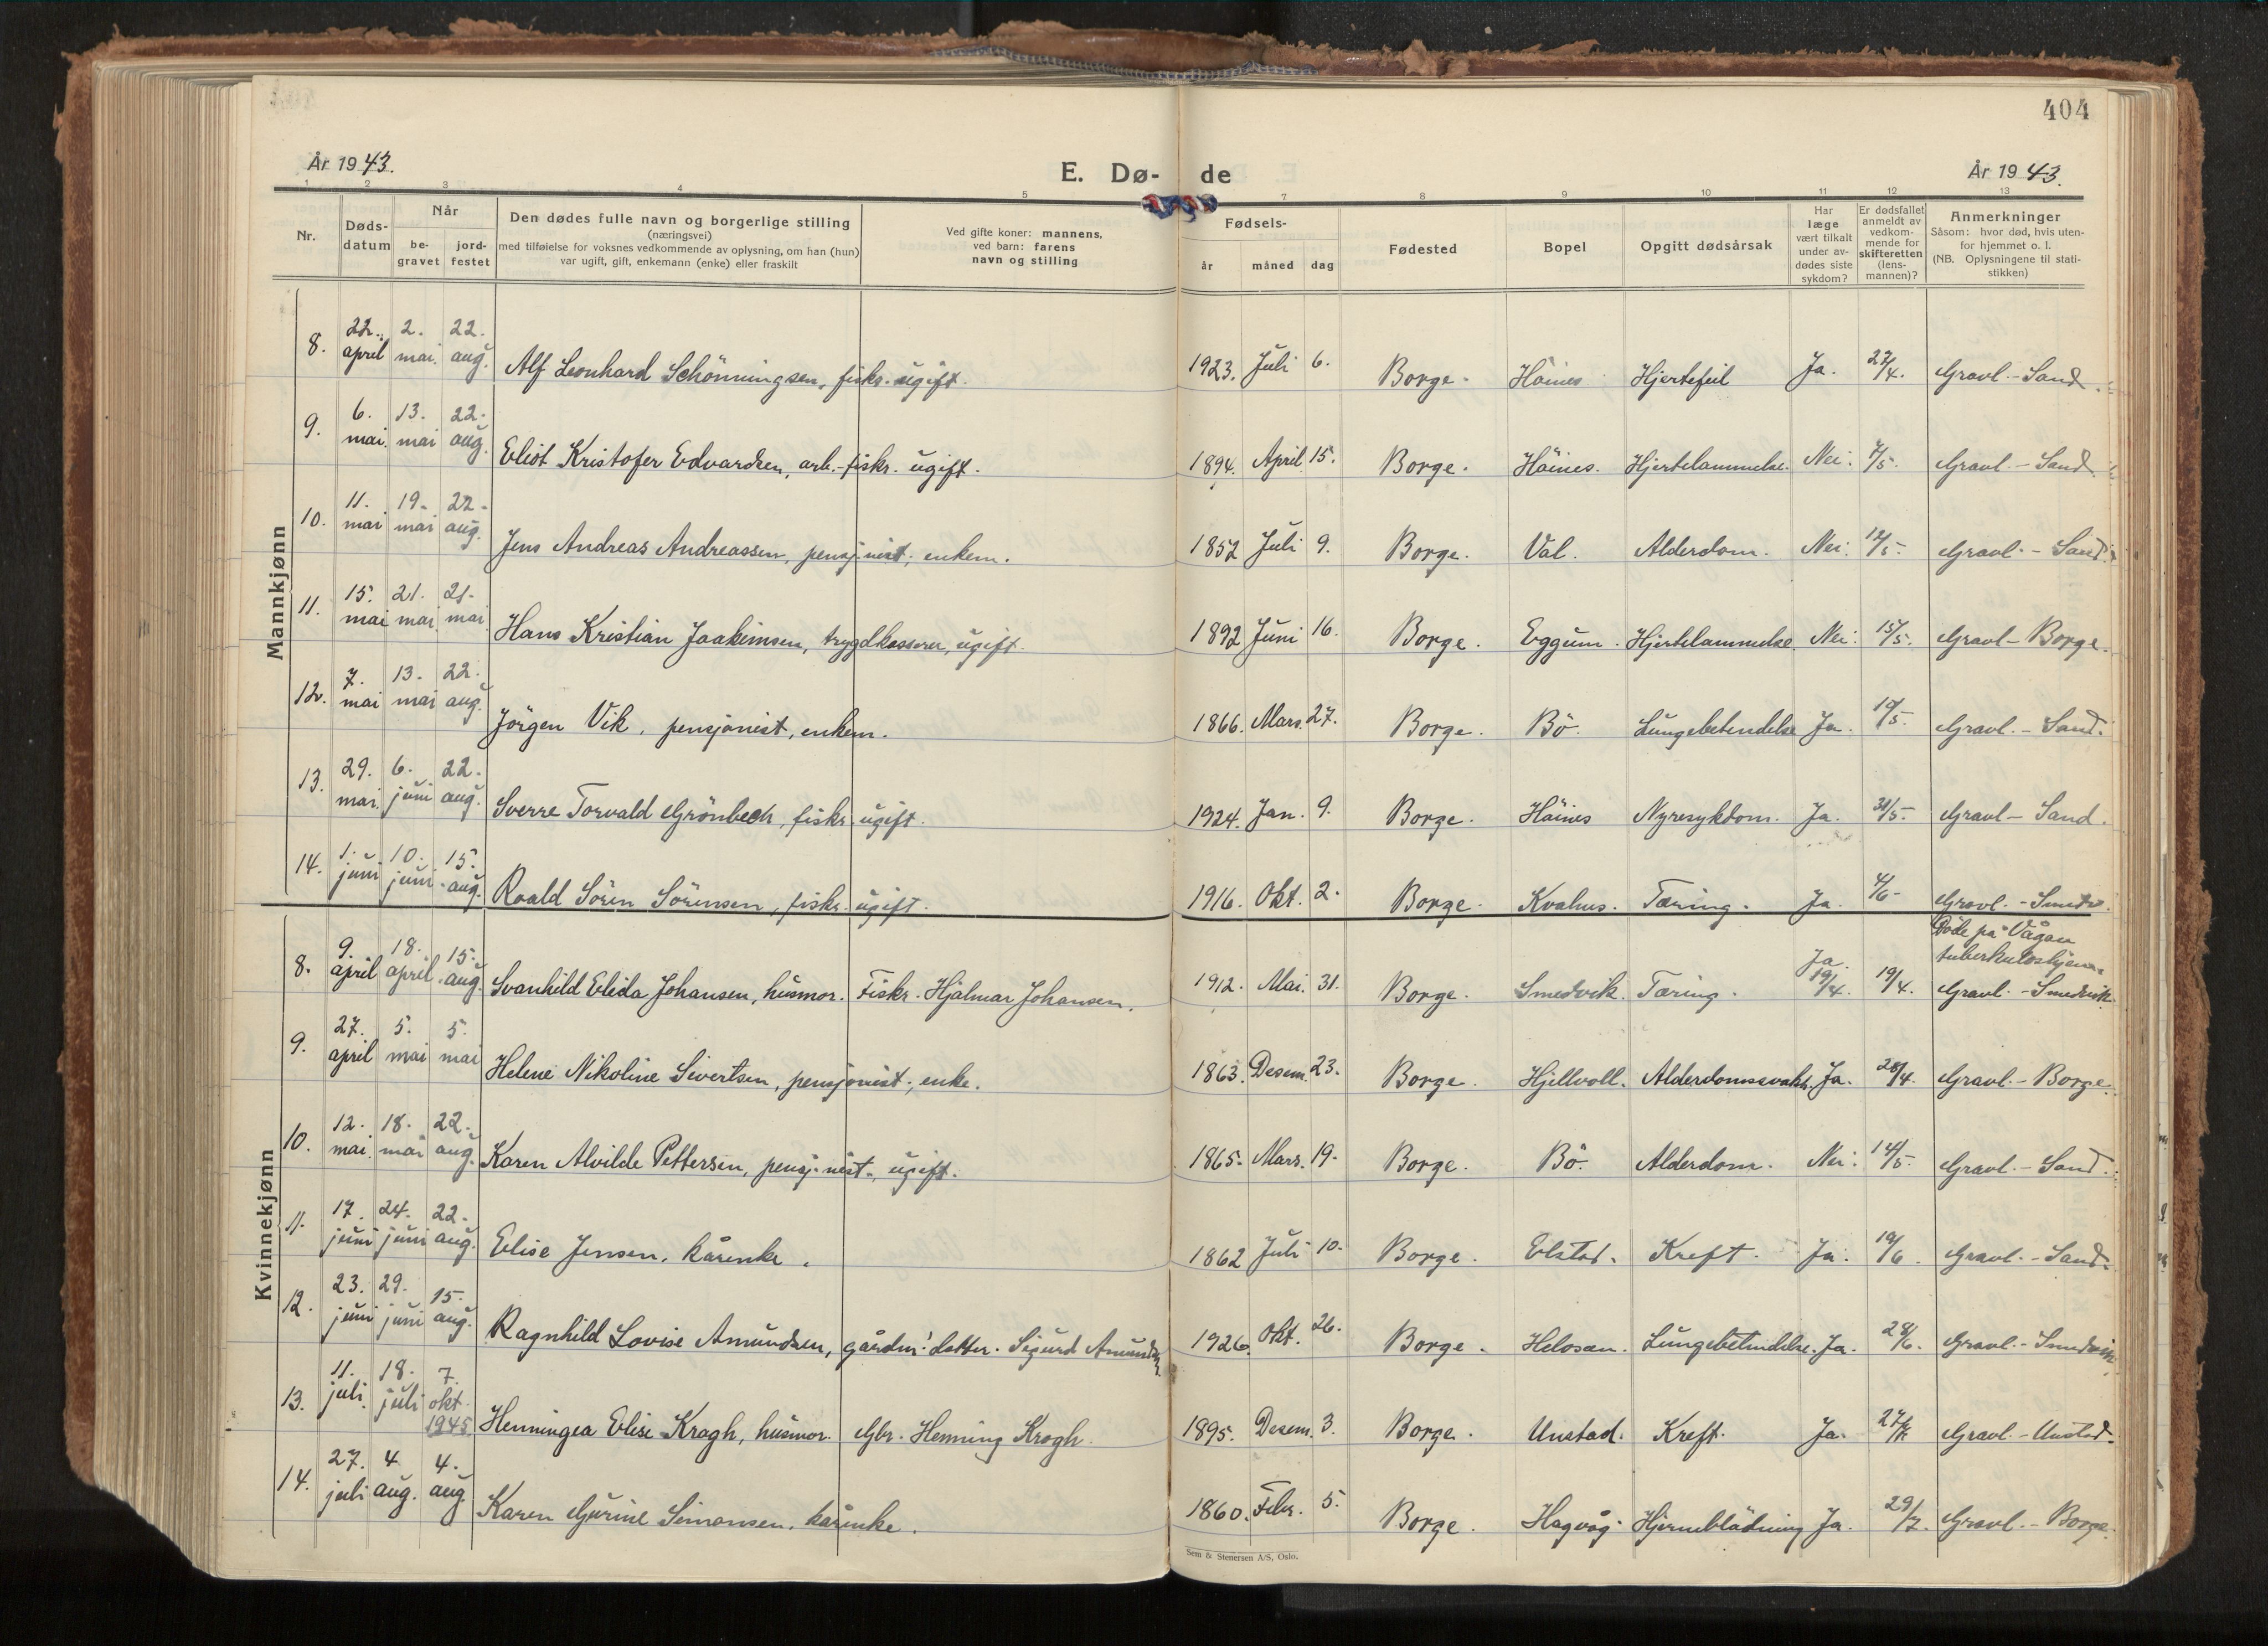 404
År 1943.
E. Dø-de
År 1943.
1 2 3 4 5 7 8 9 10 11 12 13
Nr.
Døds-
datum
Når
be-
gravet
jord-
festet
Den dødes fulle navn og borgerlige stilling
(næringsvei)
med tilføielse for voksnes vedkommende av oplysning, om han (hun)
var ugift, gift, enkemann (enke) eller fraskilt
Ved gifte koner: mannens,
ved barn: farens
navn og stilling
Fødsels-
år måned dag
Fødested
Bopel
Opgitt dødsårsak
Har
læge
vært tilkalt
under av-
dødes siste
sykdom?
Er dødsfallet
anmeldt av
vedkom-
mende for
skifteretten
(lens-
mannen)?
Anmerkninger
Såsom: hvor død, hvis uten-
for hjemmet o. l.
(NB. Oplysningene til stati-
stikken)
Mannkjønn
8. 22. april 2. mai. 22. aug. Alf Leonhard Schönningsen, fiskr. ugift. 1923. Juli 6. Borge. Höines Hjertefeil Ja. 27/4. Gravl. - Sand.
9. 6. mai. 13. mai 22. aug. Eliot Kristofer Edvardsen, arb.-fiskr. ugift. 1894. April 15. Borge. Höines. Hjertelammelse. Nei. 7/5. Gravl. - Sand.
10. 11. mai 19. mai 22. aug. Jens Andreas Andreassen, pensjonist, enkem. 1852 Juli 9. Borge. Val. Alderdom. Nei. 12/5. Gravl. - Sand.
11. 15. mai 21. mai 21. mai Hans Kristian Joakimsen, trygdkasserer, ugift. 1892 Juni 16. Borge. Eggum. Hjertelammelse. Nei. 15/5. Gravl - Borge.
12. 7. mai 13. mai 22. aug. Jörgen Vik, pensjonist, enkem. 1866. Mars. 27. Borge. Bö. Lungebetendelse Ja. 10/5. Gravl. - Sand.
13. 29. mai. 6. juni 22. aug. Sverre Torvald Grönbech, fiskr. ugift. 1924. Jan. 9. Borge. Höines Nyresykdom. Ja. 31/5. Gravl - Sand.
14. 1. juni 10. juni 15. aug. Roald Sörin Sörensen, fiskr. ugift. 1916. Okt. 2. Borge. Kvalnes. Tæring. Ja. 4/6 Gravl. - Smedv.
Kvinnekjønn
8. 9. april 18. april 15. aug. Svanhild Elida Johansen, husmor. Fiskr. Hjalmar Johansen. 1912. Mai. 31. Borge. Smedvik. Tæring. Ja. 19/4. 19/4. Döde på Vågan
tuberkuloshjem.
Gravl. - Smedvik.
9. 27. april 5. mai 5. mai Helene Nikoline Sivertsen, pensjonist, enke. 1863. Desem. 23. Borge. Hjellvoll. Alderdomssvakh. Ja. 28/4. Gravl. - Borge.
10. 12. mai. 18. mai 22. aug. Karen Alvilde Pettersen, pensj.nist., ugift. 1865. Mars. 19. Borge. Bö. Alderdom. Nei. 14/5. Gravl. - Sand.
11. 17. juni 24. juni 22. aug. Elise Jensen, kårenke. 1862 Juli 10. Borge. Elstad. Kreft. Ja. 19/6. Gravl. - Sand.
12. 23. juni 29. juni 15. aug. Ragnhild Lovise Amundsen, gårdm. datter. Sigurd Amundsen 1926. Okt. 26. Borge. Helosan. Lungebetendelse. Ja. 28/6. Gravl. - Smedvik
13. 11. juli. 18. juli 7. okt. 1945 Henningea Elise Kragh, husmor. Gbr. Henning Krogh. 1895. Desem. 3. Borge. Unstad. Kreft. Ja. Gravl. - Unstad.
14. 27. juli 4 aug. 4. aug. Karen Gurine Simonsen, kårenke. 1860. Febr. 5. Borge. Hagvåg. Hjerneblödning Ja. 29/7. Gravl. - Borge.
Sem & Stenersen A/S, Oslo.